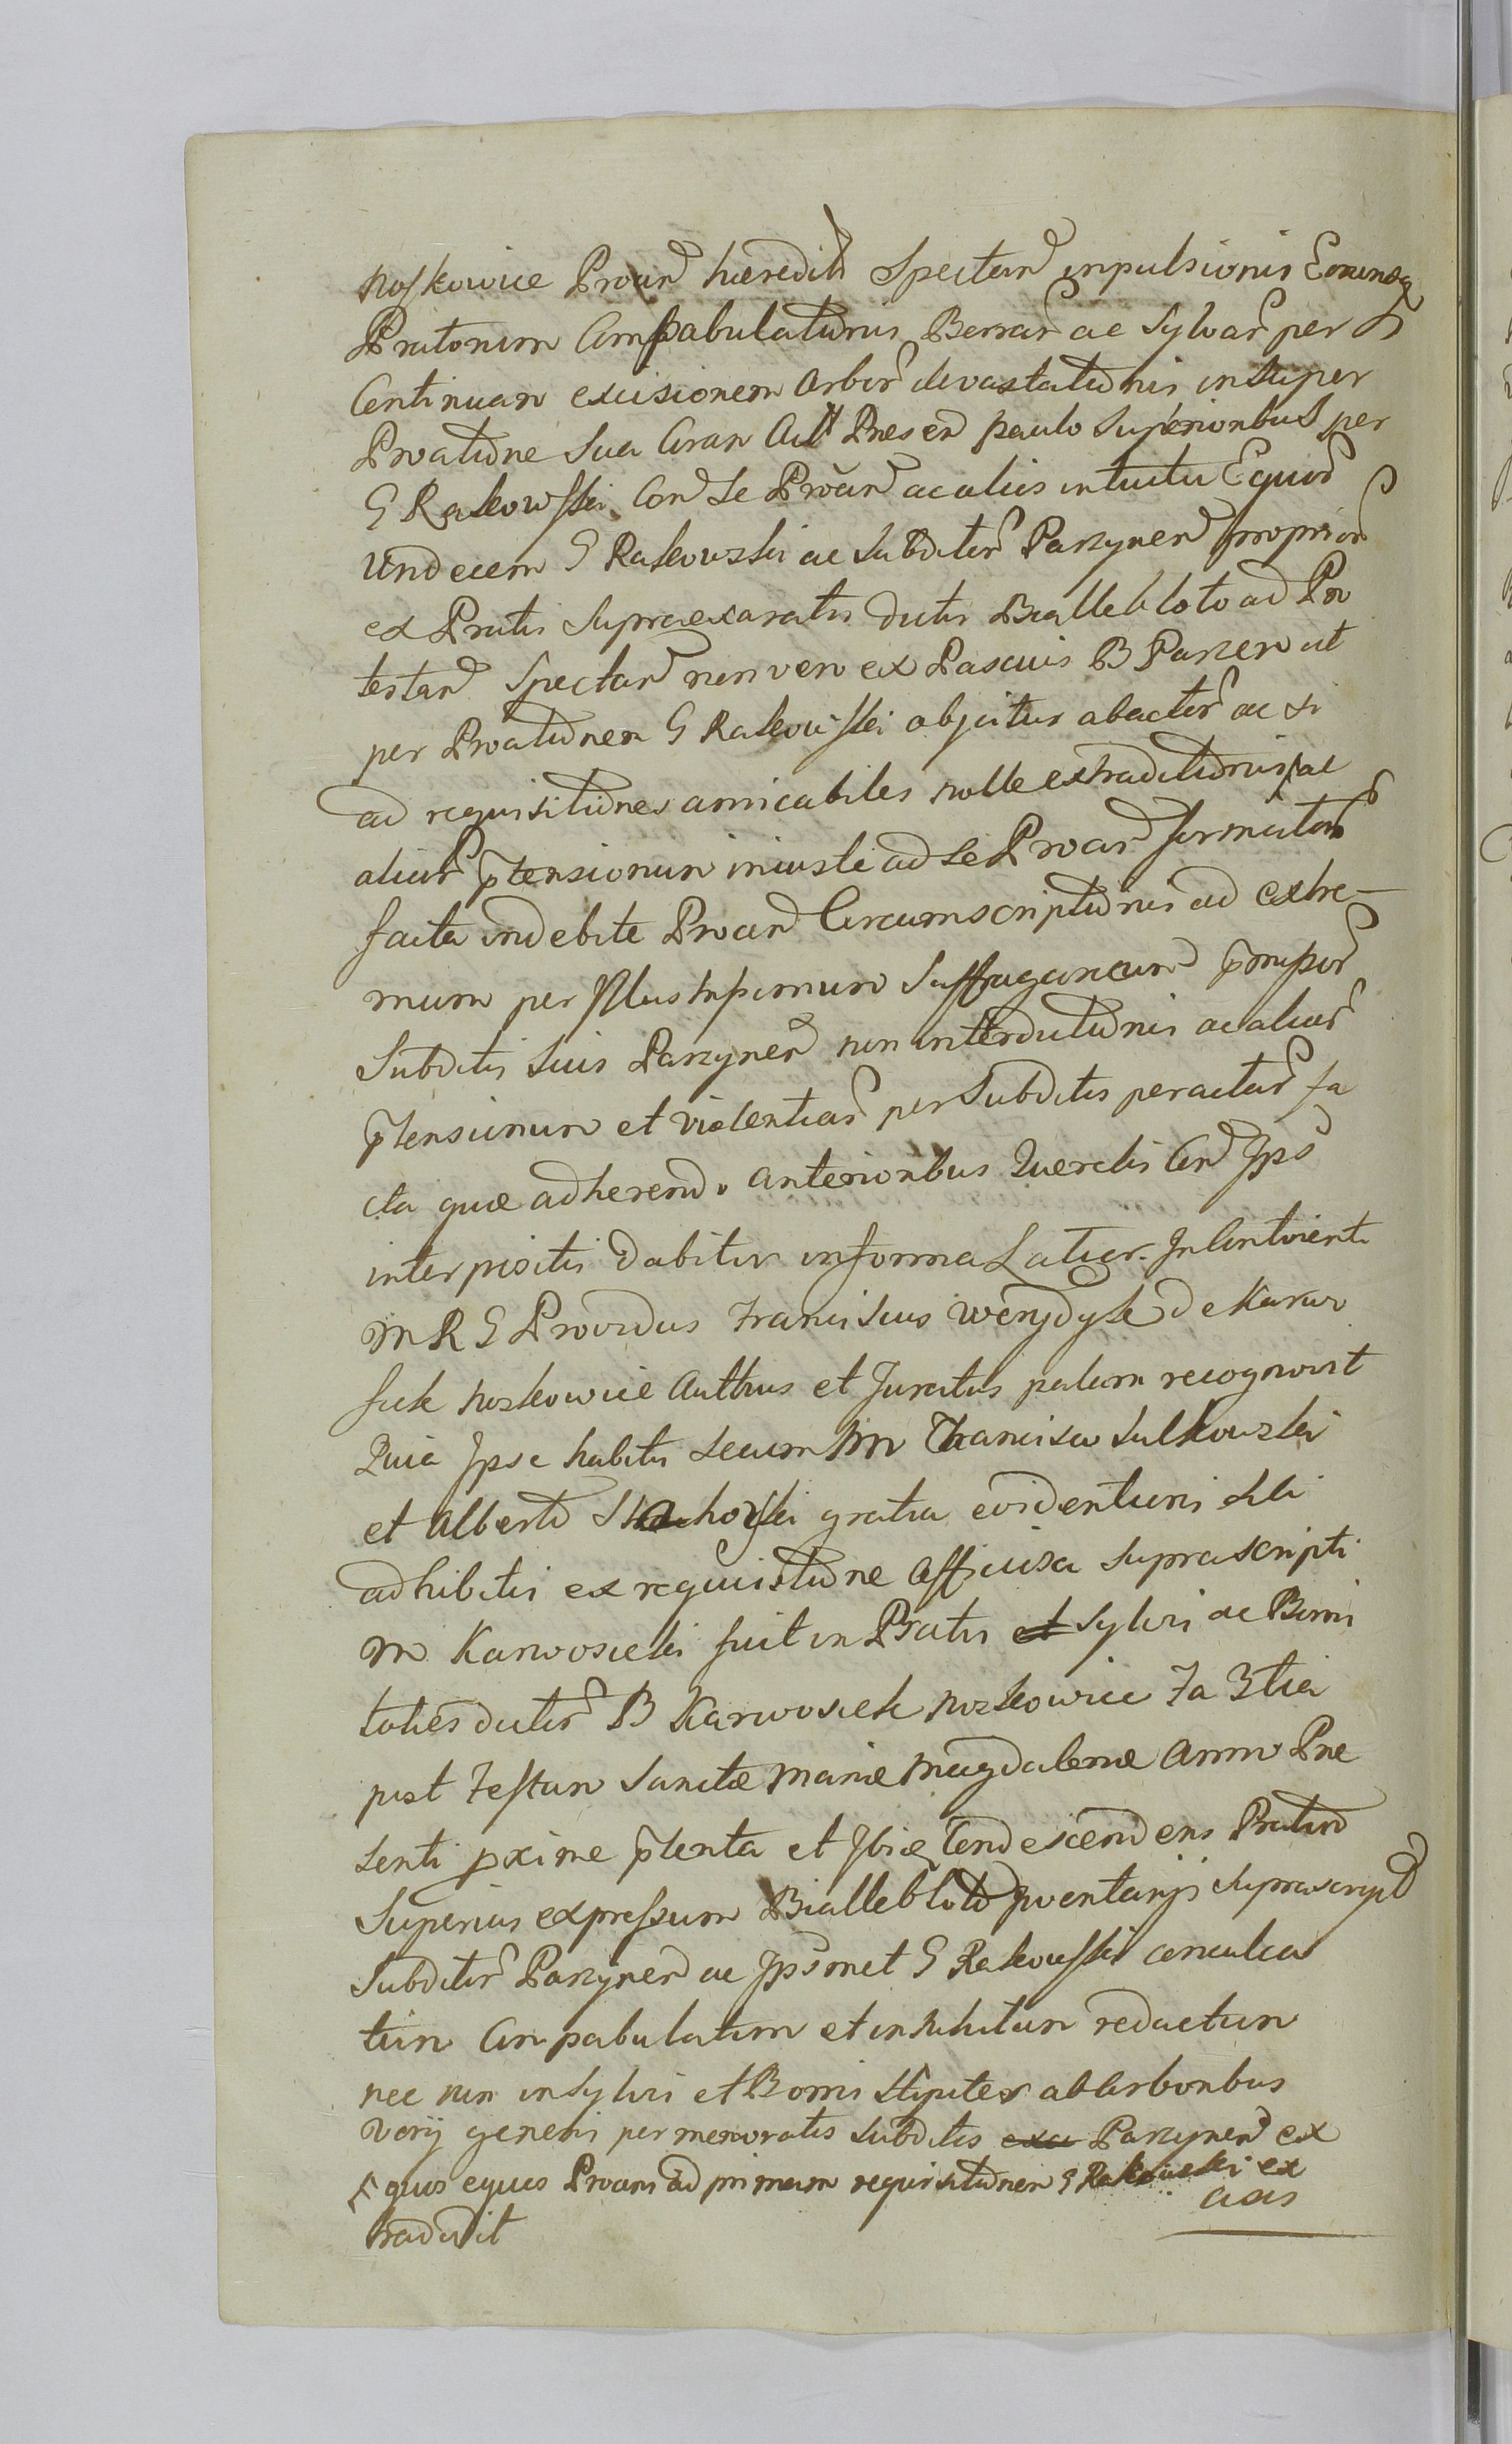 noskowice Proan haeredit Spectan inpulsionis Eorumq
Pratorum Compabulationis Borrar ac Sylvar per
Continuam excisionem Arbor devastationis insuper
Proatione Sua Coram Act Presen paulo Superioribus per
G Rakowski Con Se Proan ac aliis intuitu Equor
Undecem G Rakowski ac Subditor Parzynen proprior
ex Pratis Supraexaratis dictis Biallebloto ad Pro
testan Spectan non vero ex Pascuis B Parzen ut
per Proationem G Rakowski objicitur abactor ac si
ad requisitiones amicabiles nolle extraditionis ac
aliar ptensionum iniuste ad se Proan formatar
facta indebite Proan Circumscriptionis ad extre-
mum per Illustrissimum Suffraganeum
Subditis Suis Parzynen non interdictionis ac aliar
ptensionum et violentiar per Subditos peractar fa
cta quae adherendo anterionbus Querelis Con Ips
interpositis dabitur in forma Latior. In Continenti
M R G Providus Franciscus de Karwo
siek noskowice Aulhus et Juratus palam recognovit
Quia Ipse habitis secum M Francisco Sulkowski
et Alberto gratia evidentioris sibi
adhibitis ex requisitione Officiosa suprascripti
M Karwosieki fuit in Pratis et Sylvis ac Borris
toties dictor B Karwosiek noskowice Fa 3tia
post Festum Sanctae Mariae Magdalenae Anno Prae
senti pxime pterita et Ibiq Condescendens Pratum
Superius expressum Bialleblotto Inventarijs suprascript
Subditor Parzynen ac Ipsmet G Rakowski conculca
tum Compabulatum et in nihilum redactum
nec non in Sylvis et Borris Stipites ab Arboribus
Varij generis per memoratos Subditos exci Parzynen ex
quos equos Proans ad primam requisitionem G Rakowski ex
cisis
tradidit